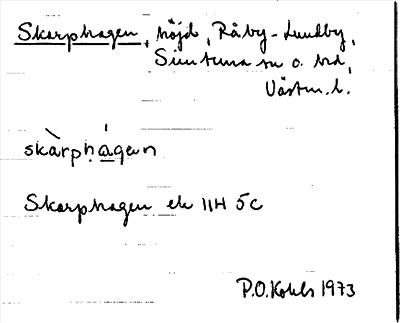 Skarphagen, höjd, Råby-Lundby,
Simtuna sn o. hd,
Västm. l.
skàrpḥágen
Skarphagen ek 11H 5c
P.O.Kohls 1973